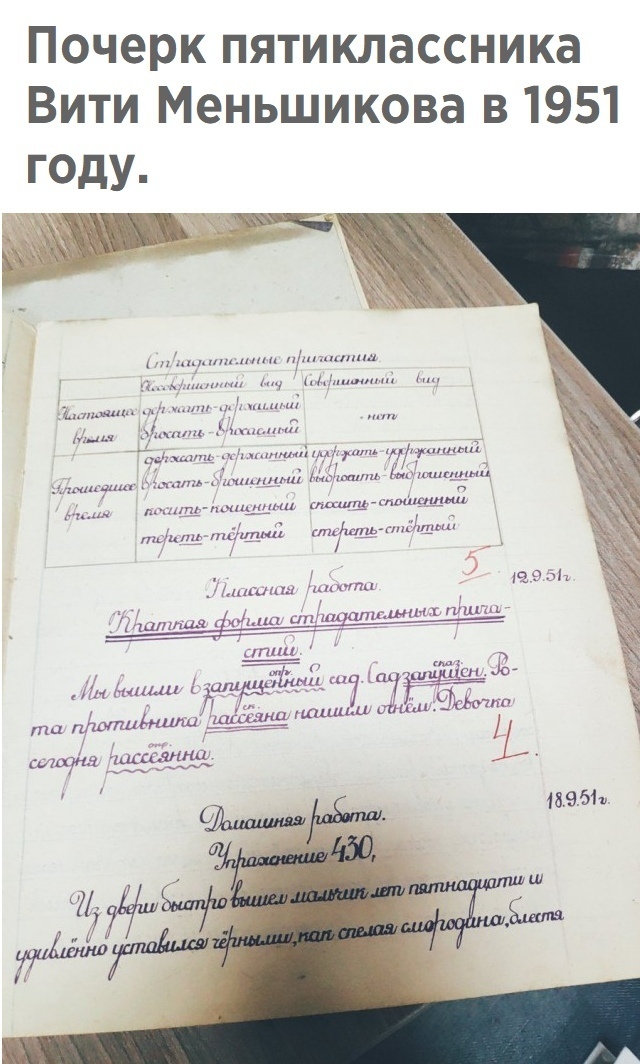 Почерк пятиклассника
Вити Меньшикова в 1951
году.
Страдательные причастия
Несовершенный вид Совершенный вид
Настоящее время
держать-держимый
бросать-бросаемый
- нет
Прошедшее время
держать-держанный
бросать-брошенный
косить-кошенный
тереть-тёртый
удержать-удержанный
выбросить-выброшенный
скосить-скошенный
стереть-стёртый
5
12.9.51г.
Классная работа.
Краткая форма страдательных прича-
стий.
опр. сказ.
Мы вышли в запущенный сад. Сад запущен. Ро-
ск.
та противника рассеяна нашим огнём. Девочка
опр.
сегодня рассеянна.
4
18.9.51г.
Домашняя работа.
Упражнение 430,
Из двери быстро вышел мальчик лет пятнадцати и
удивлённо уставился чёрными, как спелая смородина, блестя